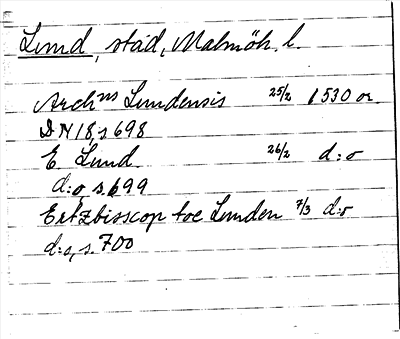 Lund, stad, Malmöh. l.
Archns Lundensis 25/2 1530 or.
DN 18, s 698
E. Lund. 26/2 d:o
d:o, s. 699
Ertzbisscop toe Lunden 7/3 d:o
d:o, s. 700